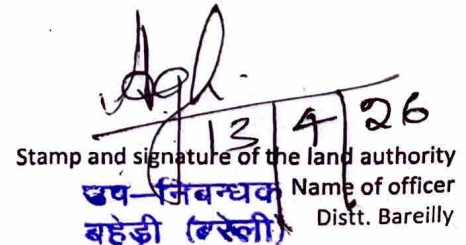 13 | 4 | 26
Stamp and signature of the land authority
उप-निबन्धक Name of officer
बहेड़ी (बरेली) Distt. Bareilly